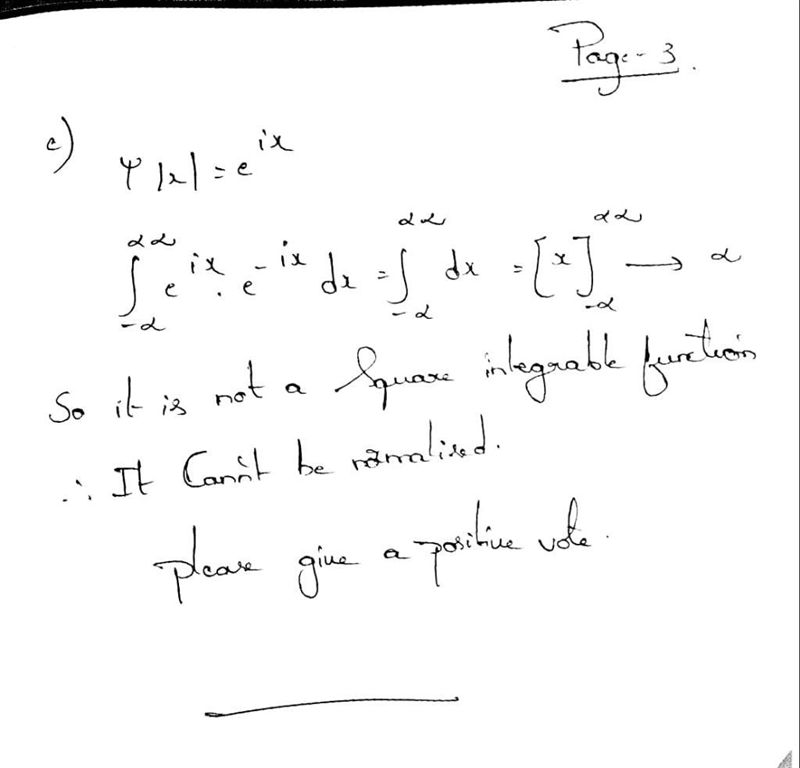 Page-3.
c) ψ|x| = e^{ix}
∫_{-α}^{αα} e^{ix} . e^{-ix} dx = ∫_{-α}^{αα} dx = [x]_{-α}^{αα} → α
So it is not a Square integrable function
∴ It Cann't be normalised.
please give a positive vote.